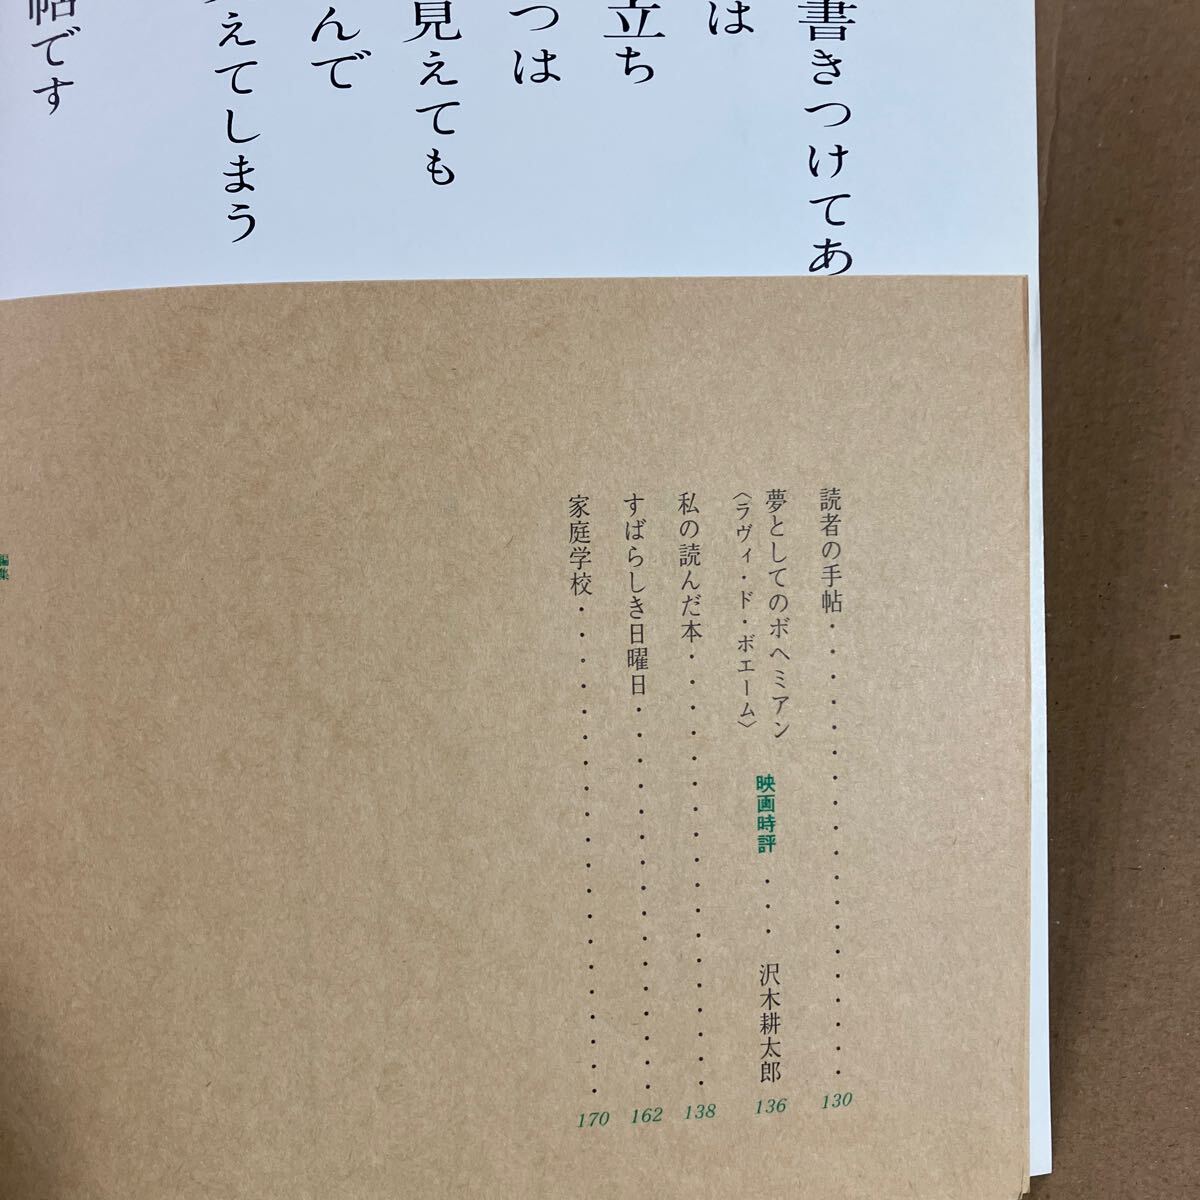 書きつけてあ
は
立ち
つは
見えても
んで
えてしまう
帖です
読者の手帖・・・・・・・・・・・・・・・・・・130
夢としてのボヘミアン
〈ラヴィ・ド・ボエーム〉
映画時評・・・沢木耕太郎 136
私の読んだ本・・・・・・・・・・・・・・・・・138
すばらしき日曜日・・・・・・・・・・・・・・・162
家庭学校・・・・・・・・・・・・・・・・・・・170
編集